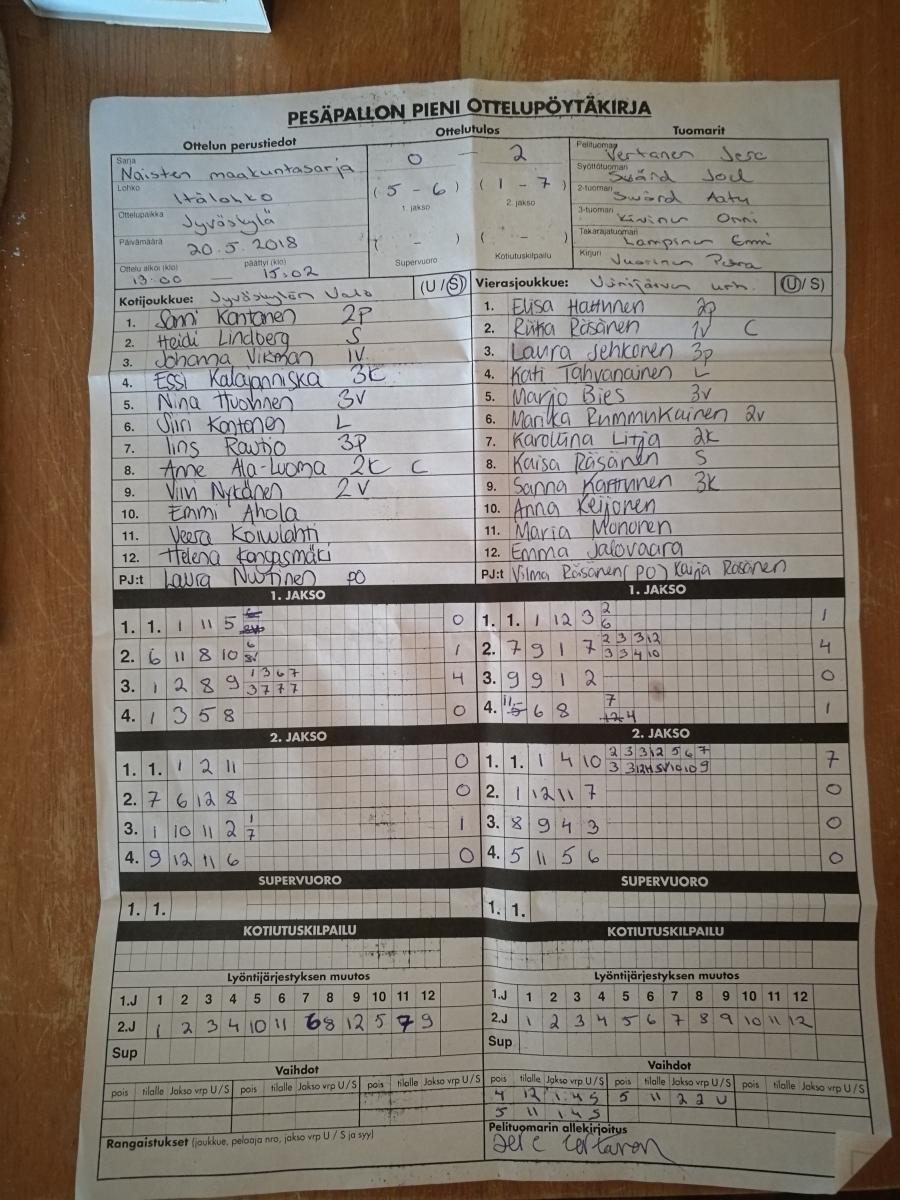 PESÄPALLON PIENI OTTELUPÖYTÄKIRJA
Ottelun perustiedot
Ottelutulos
Tuomarit
Sarja
Naisten maakuntasarja
Lohko
Itälohko
Ottelupaikka
Jyväskylä
Päivämäärä
20.5.2018
Ottelu alkoi (klo) päättyi (klo)
13:00 — 15:02
0 — 2
(5 - 6) (1 - 7)
1. jakso 2. jakso
( - ) ( - )
Supervuoro Kotiutuskilpailu
Pelituomari
Vertanen Jere
Syöttötuomari
Swärd Joel
2-tuomari
Swärd Aatu
3-tuomari
Kivinen Onni
Takarajatuomari
Lampinen Emmi
Kirjuri
Vuorinen Petra
Kotijoukkue: Jyväskylän Valo (U/S)
1. Sanni Kantonen 2P
2. Heidi Lindberg S
3. Johanna Vikman 1V
4. Essi Kalajanniska 3K
5. Nina Huovinen 3V
6. Siiri Kantonen L
7. Iins Rautio 3P
8. Anne Ala-Luoma 2K C
9. Viivi Nykänen 2V
10. Emmi Ahola
11. Veera Koivulahti
12. Helena Kangasmäki
PJ:t Laura Nuutinen PO
Vierasjoukkue: urh. (U/S)
1. Elisa Hattunen 2p
2. Riika Räsänen 1V C
3. Laura Jehkonen 3p
4. Kati Tahvanainen L
5. Marjo Bies 3v
6. Marika Rummukainen 2v
7. Karoliina Litja 2K
8. Kaisa Räsänen S
9. Sanna Karttunen 3K
10. Anna Keijonen
11. Maria Mononen
12. Emma Jalovaara
PJ:t Vilma Räsänen (PO) Kaija Räsänen
1. JAKSO
1. 1. 1 11 5 0
2. 6 11 8 10 6 1
3. 1 2 8 9 1 3 6 7 4
3 7 7 7
4. 1 3 5 8 0
1. JAKSO
1. 1. 1 12 3 2 1
6
2. 7 9 1 7 2 3 3 12 4
3 3 4 10
3. 9 9 1 2 0
4. 11 5 6 8 7 1
12 4
2. JAKSO
1. 1. 1 2 11 0
2. 7 6 12 8 0
3. 1 10 11 2 1 1
7
4. 9 12 11 6 0
2. JAKSO
1. 1. 1 4 10 2 3 3 12 5 6 7 7
2. 1 12 11 7 0
3. 8 9 4 3 0
4. 5 11 5 6 0
SUPERVUORO
1. 1.
SUPERVUORO
1. 1.
KOTIUTUSKILPAILU
KOTIUTUSKILPAILU
Lyöntijärjestyksen muutos
1.J 1 2 3 4 5 6 7 8 9 10 11 12
2.J 1 2 3 4 10 11 6 8 12 5 7 9
Sup
Lyöntijärjestyksen muutos
1.J 1 2 3 4 5 6 7 8 9 10 11 12
2.J 1 2 3 4 5 6 7 8 9 10 11 12
Sup
Vaihdot
pois tilalle Jakso vrp U/S pois tilalle Jakso vrp U/S pois tilalle Jakso vrp U/S
Vaihdot
pois tilalle Jakso vrp U/S pois tilalle Jakso vrp U/S pois tilalle Jakso vrp U/S
4 12 1 4 S 5 11 2 2 U
5 11 1 4 S
Rangaistukset (joukkue, pelaaja nro, jakso vrp U / S ja syy)
Pelituomarin allekirjoitus